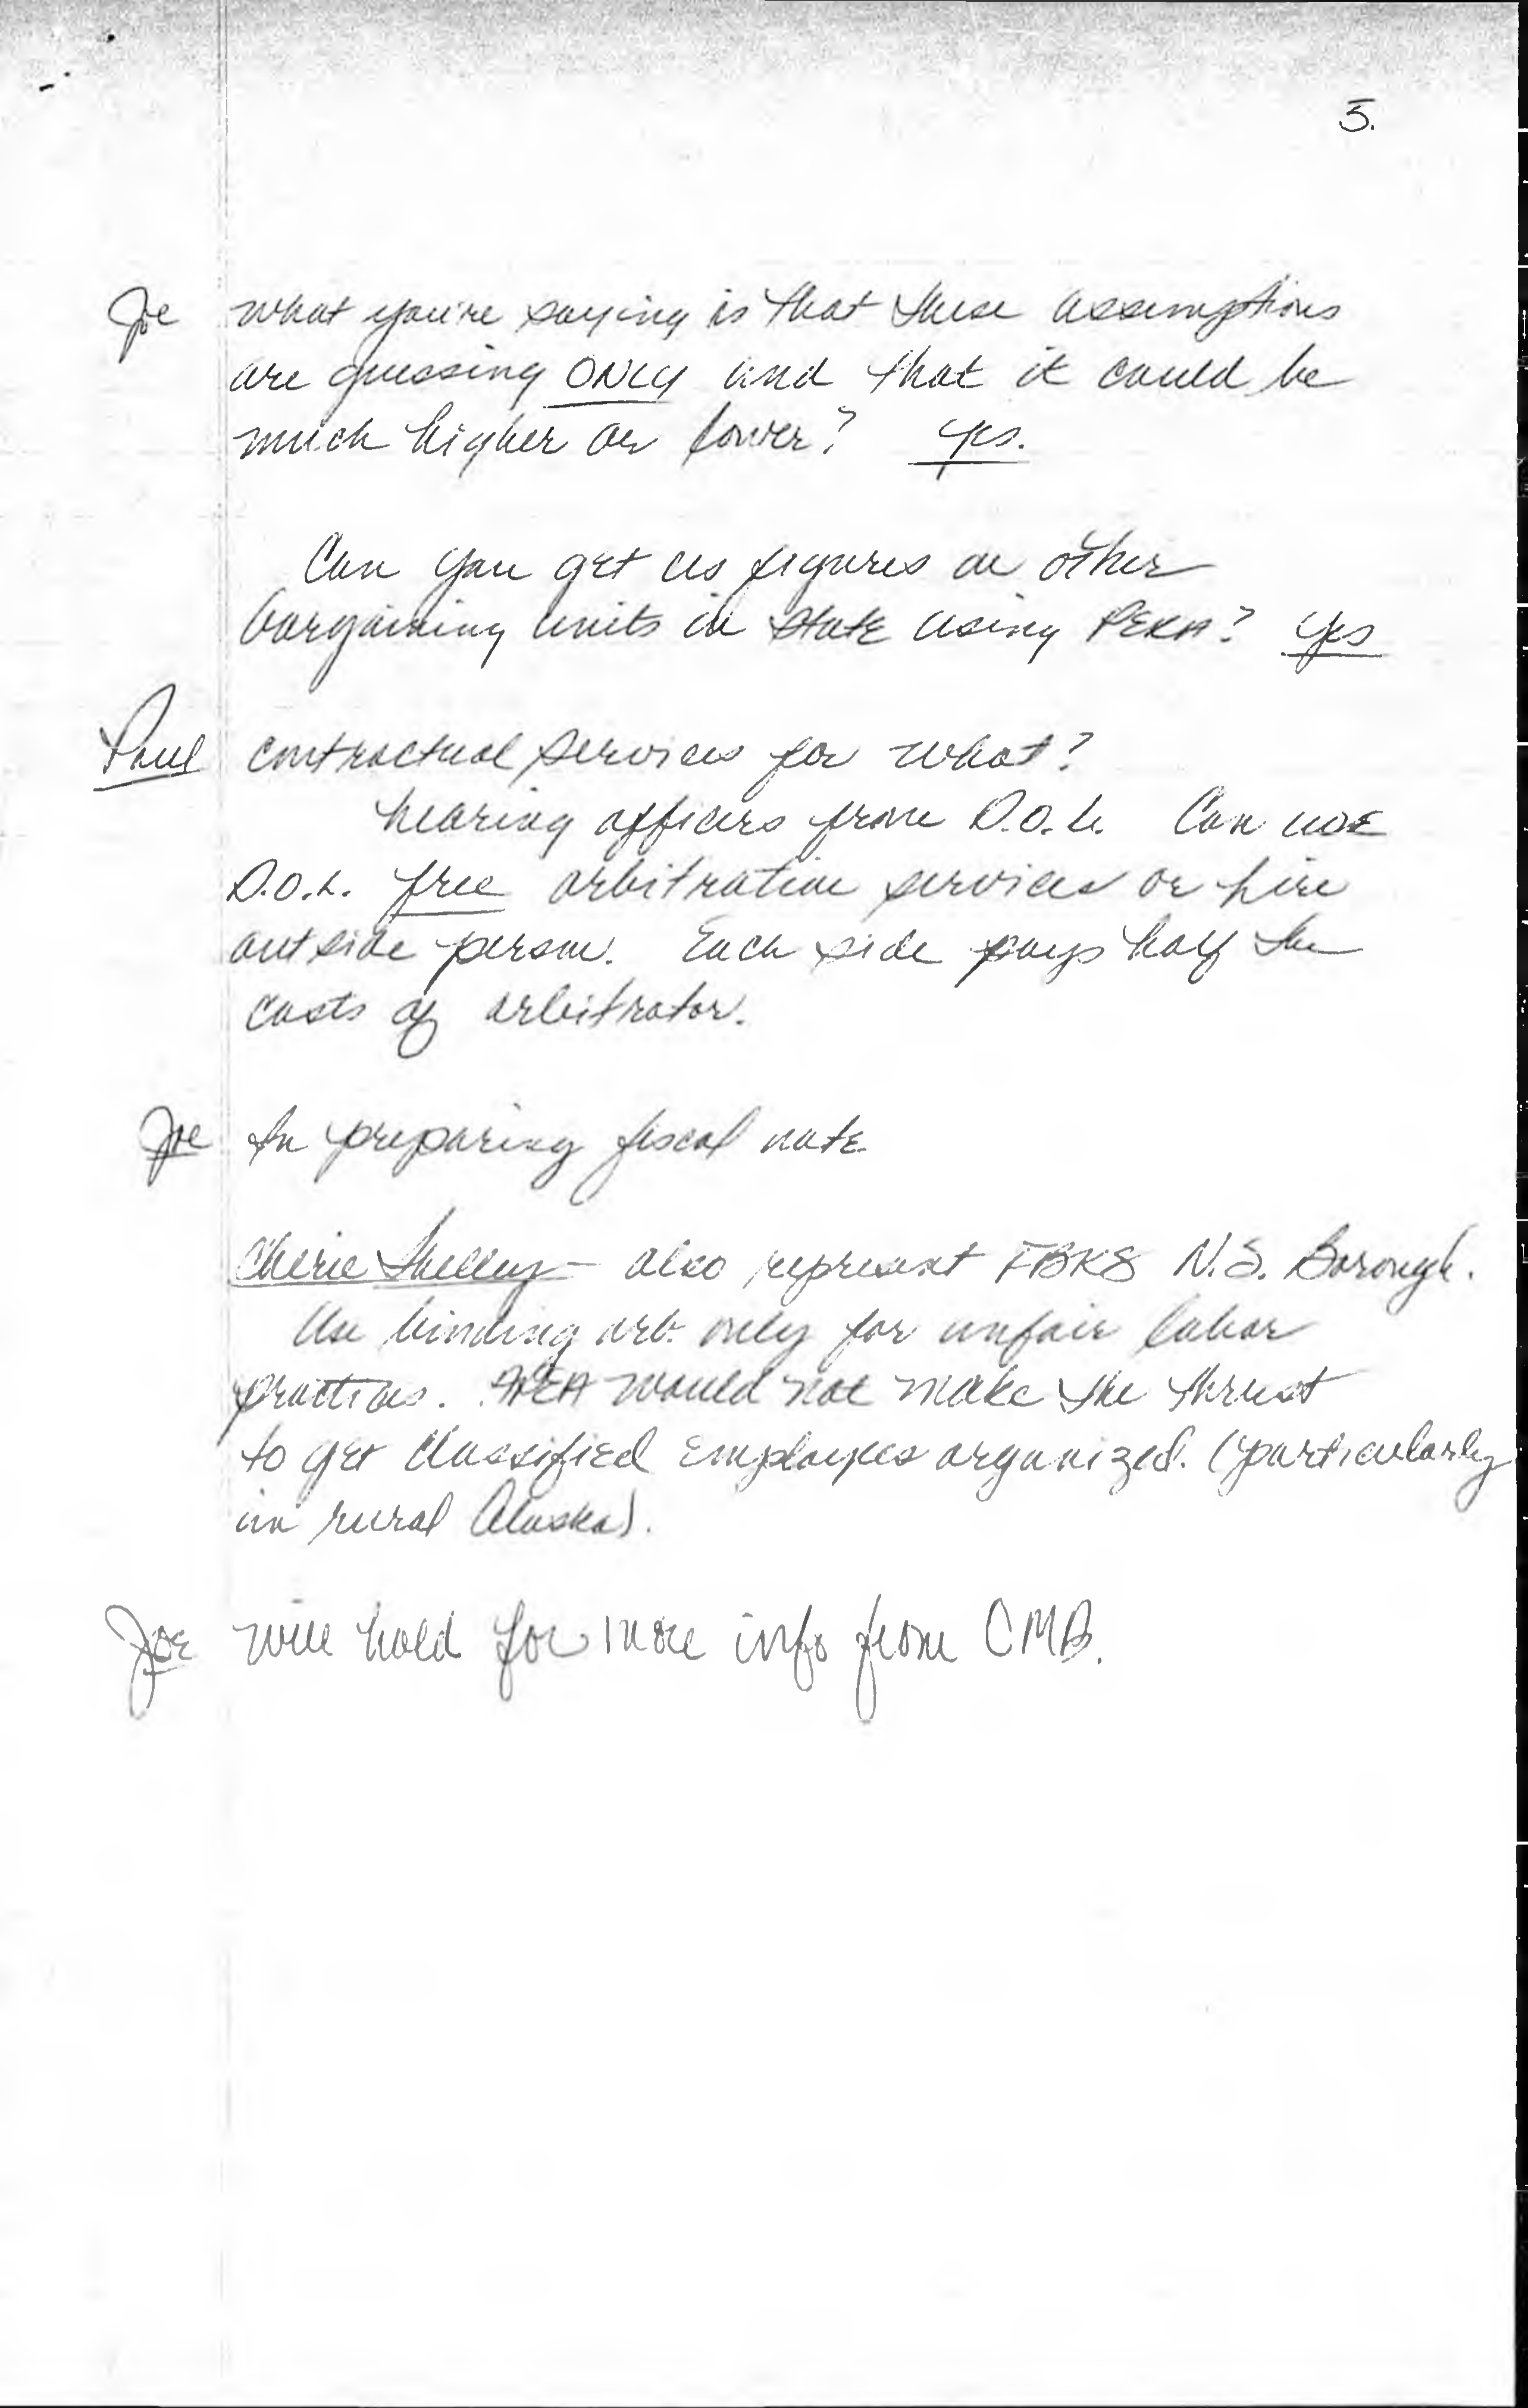 5.
Joe what you're saying is that these assumptions
are guessing ONLY and that it could be
much higher or lower? yes.
Can you get us figures on other
bargaining units in state using PERA? yes
Paul contractual services for what?
hearing officers from D.O.L. Can use
D.O.L. free arbitration services or hire
outside person. Each side pays half the
costs of arbitrator.
Joe In preparing fiscal note
Cherie Shelley - also represent FBKS N.S. Borough.
Use binding arb. only for unfair labor
practices. NEA would not make the thrust
to get classified employees organized. (particularly
in rural Alaska).
Joe will hold for more info from OMB.